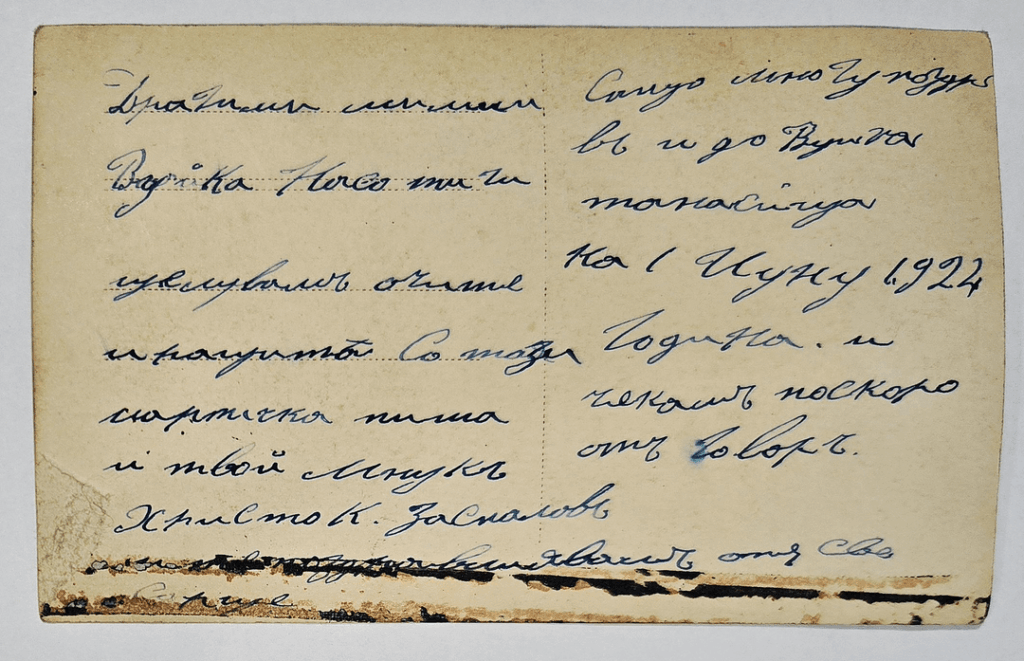 Драгими мили
Вуйка Насо ти ги
целувамъ очите
и рацитѣ Со тази
картичка пиша
и твой мнукъ
Христо К. Заспаловъ
отъ
Само многу поздра
въ и до Вуйна
танасица
на 1 Иуну 1924
Година. и
чекамъ поскоро
отъ Говоръ.